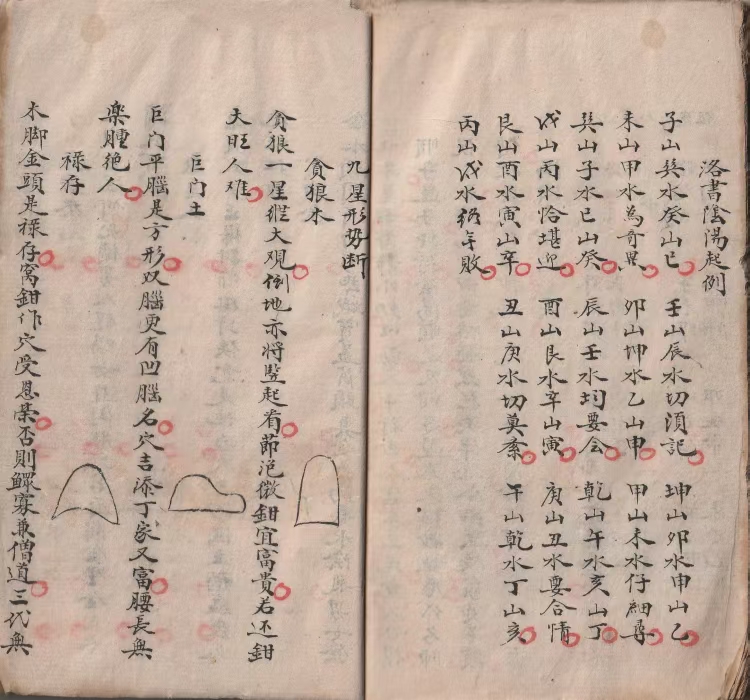 洛書陰陽起例
子山巽水癸山巳 壬山辰水切須記 坤山卯水申山乙
未山甲水為奇異 卯山坤水乙山申 甲山未水仔細尋
巽山子水巳山癸 辰山壬水均要会 乾山午水亥山丁
戌山丙水恰堪迎 酉山艮水辛山寅 庚山丑水要合情
艮山酉水寅山辛 丑山庚水切莫紊 午山乾水丁山亥
丙山戌水年敗
九星形势断
貪狼木
貪狼一星縱大观倒地亦将豎起看節泡微鉗宜富貴若还鉗
大旺人难
巨门土
巨门平腦是方形双腦更有凹腦名穴吉添丁家又富腰長無
樂腫绝人
禄存
木脚金頭是禄存窩鉗作穴受恩荣否則鰥寡兼僧道三代無